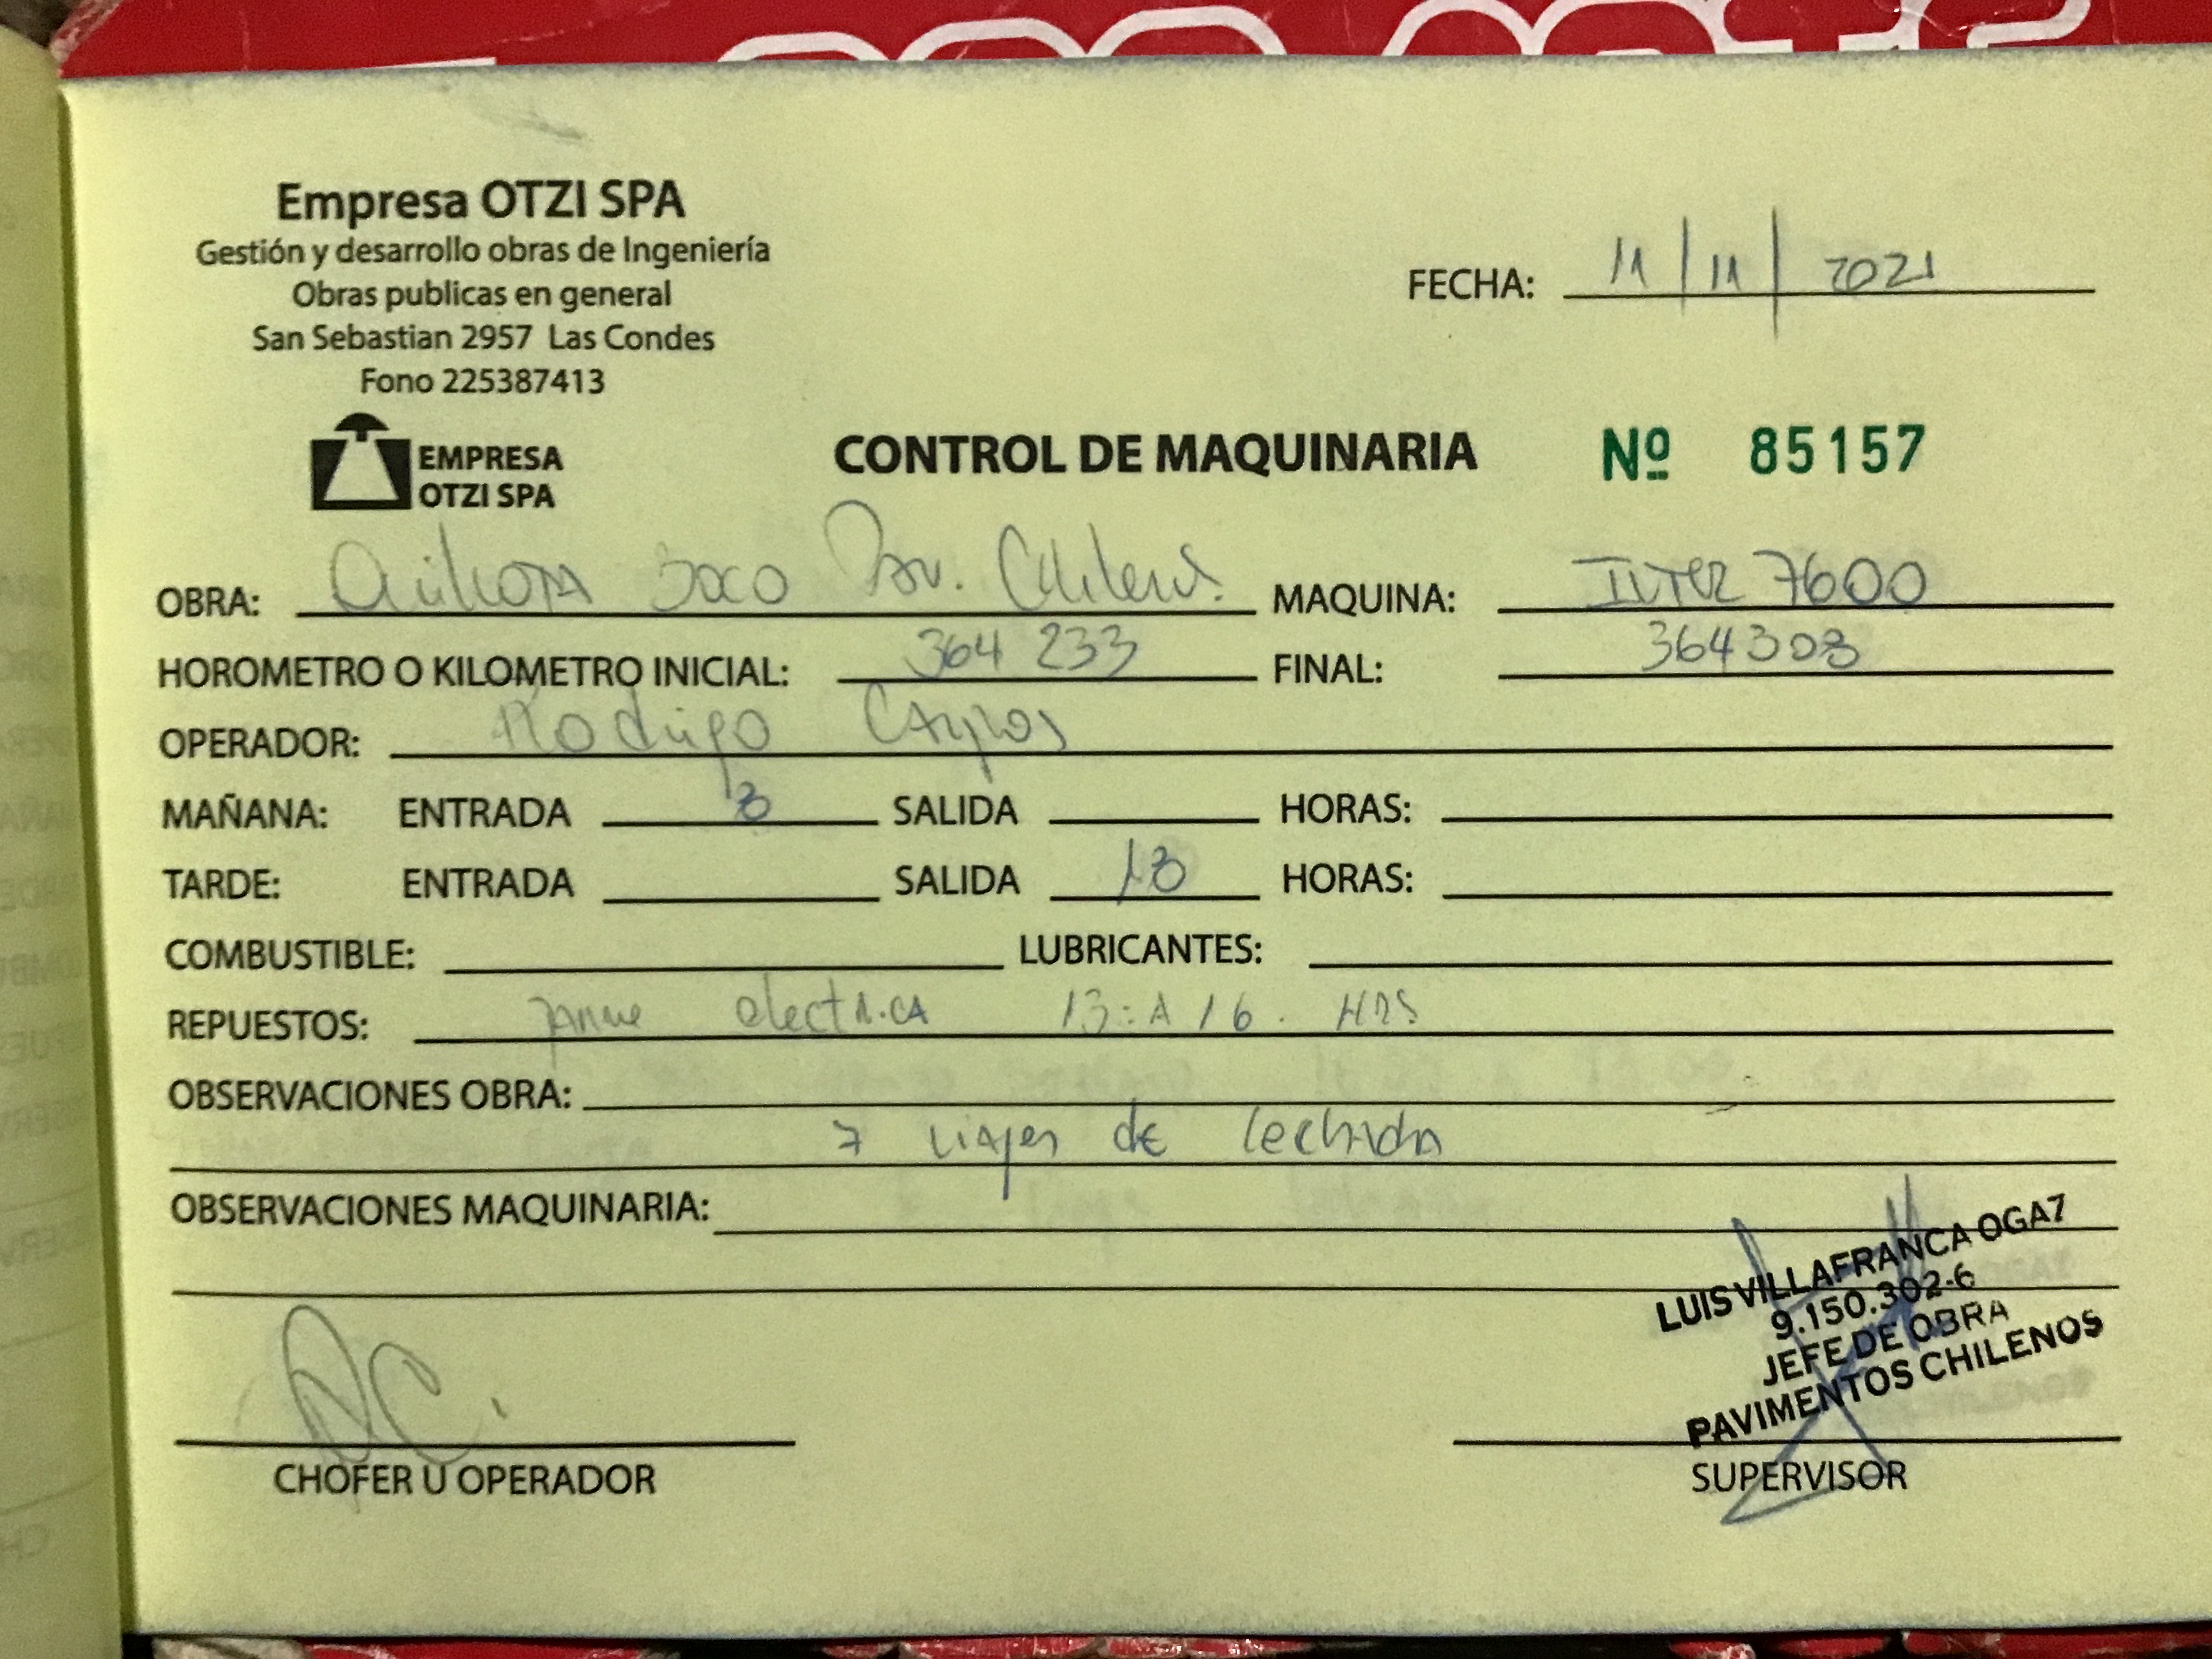 Empresa OTZI SPA
Gestión y desarrollo obras de Ingeniería
Obras publicas en general
San Sebastian 2957 Las Condes
Fono 225387413
FECHA: 11 / 11 / 2021
EMPRESA
OTZI SPA
CONTROL DE MAQUINARIA Nº 85157
OBRA: Quilicura MAQUINA: Inter 7600
HOROMETRO O KILOMETRO INICIAL: 364 233 FINAL: 364 308
OPERADOR: Rodrigo Campos
MAÑANA: ENTRADA SALIDA HORAS:
TARDE: ENTRADA SALIDA HORAS:
COMBUSTIBLE: LUBRICANTES:
REPUESTOS: electrica 13: A 16. HRS
OBSERVACIONES OBRA:
7 viajes de lechada
OBSERVACIONES MAQUINARIA:
LUIS VILLAFRANCA OGAZ
9.150.302-6
JEFE DE OBRA
PAVIMENTOS CHILENOS
CHOFER U OPERADOR SUPERVISOR